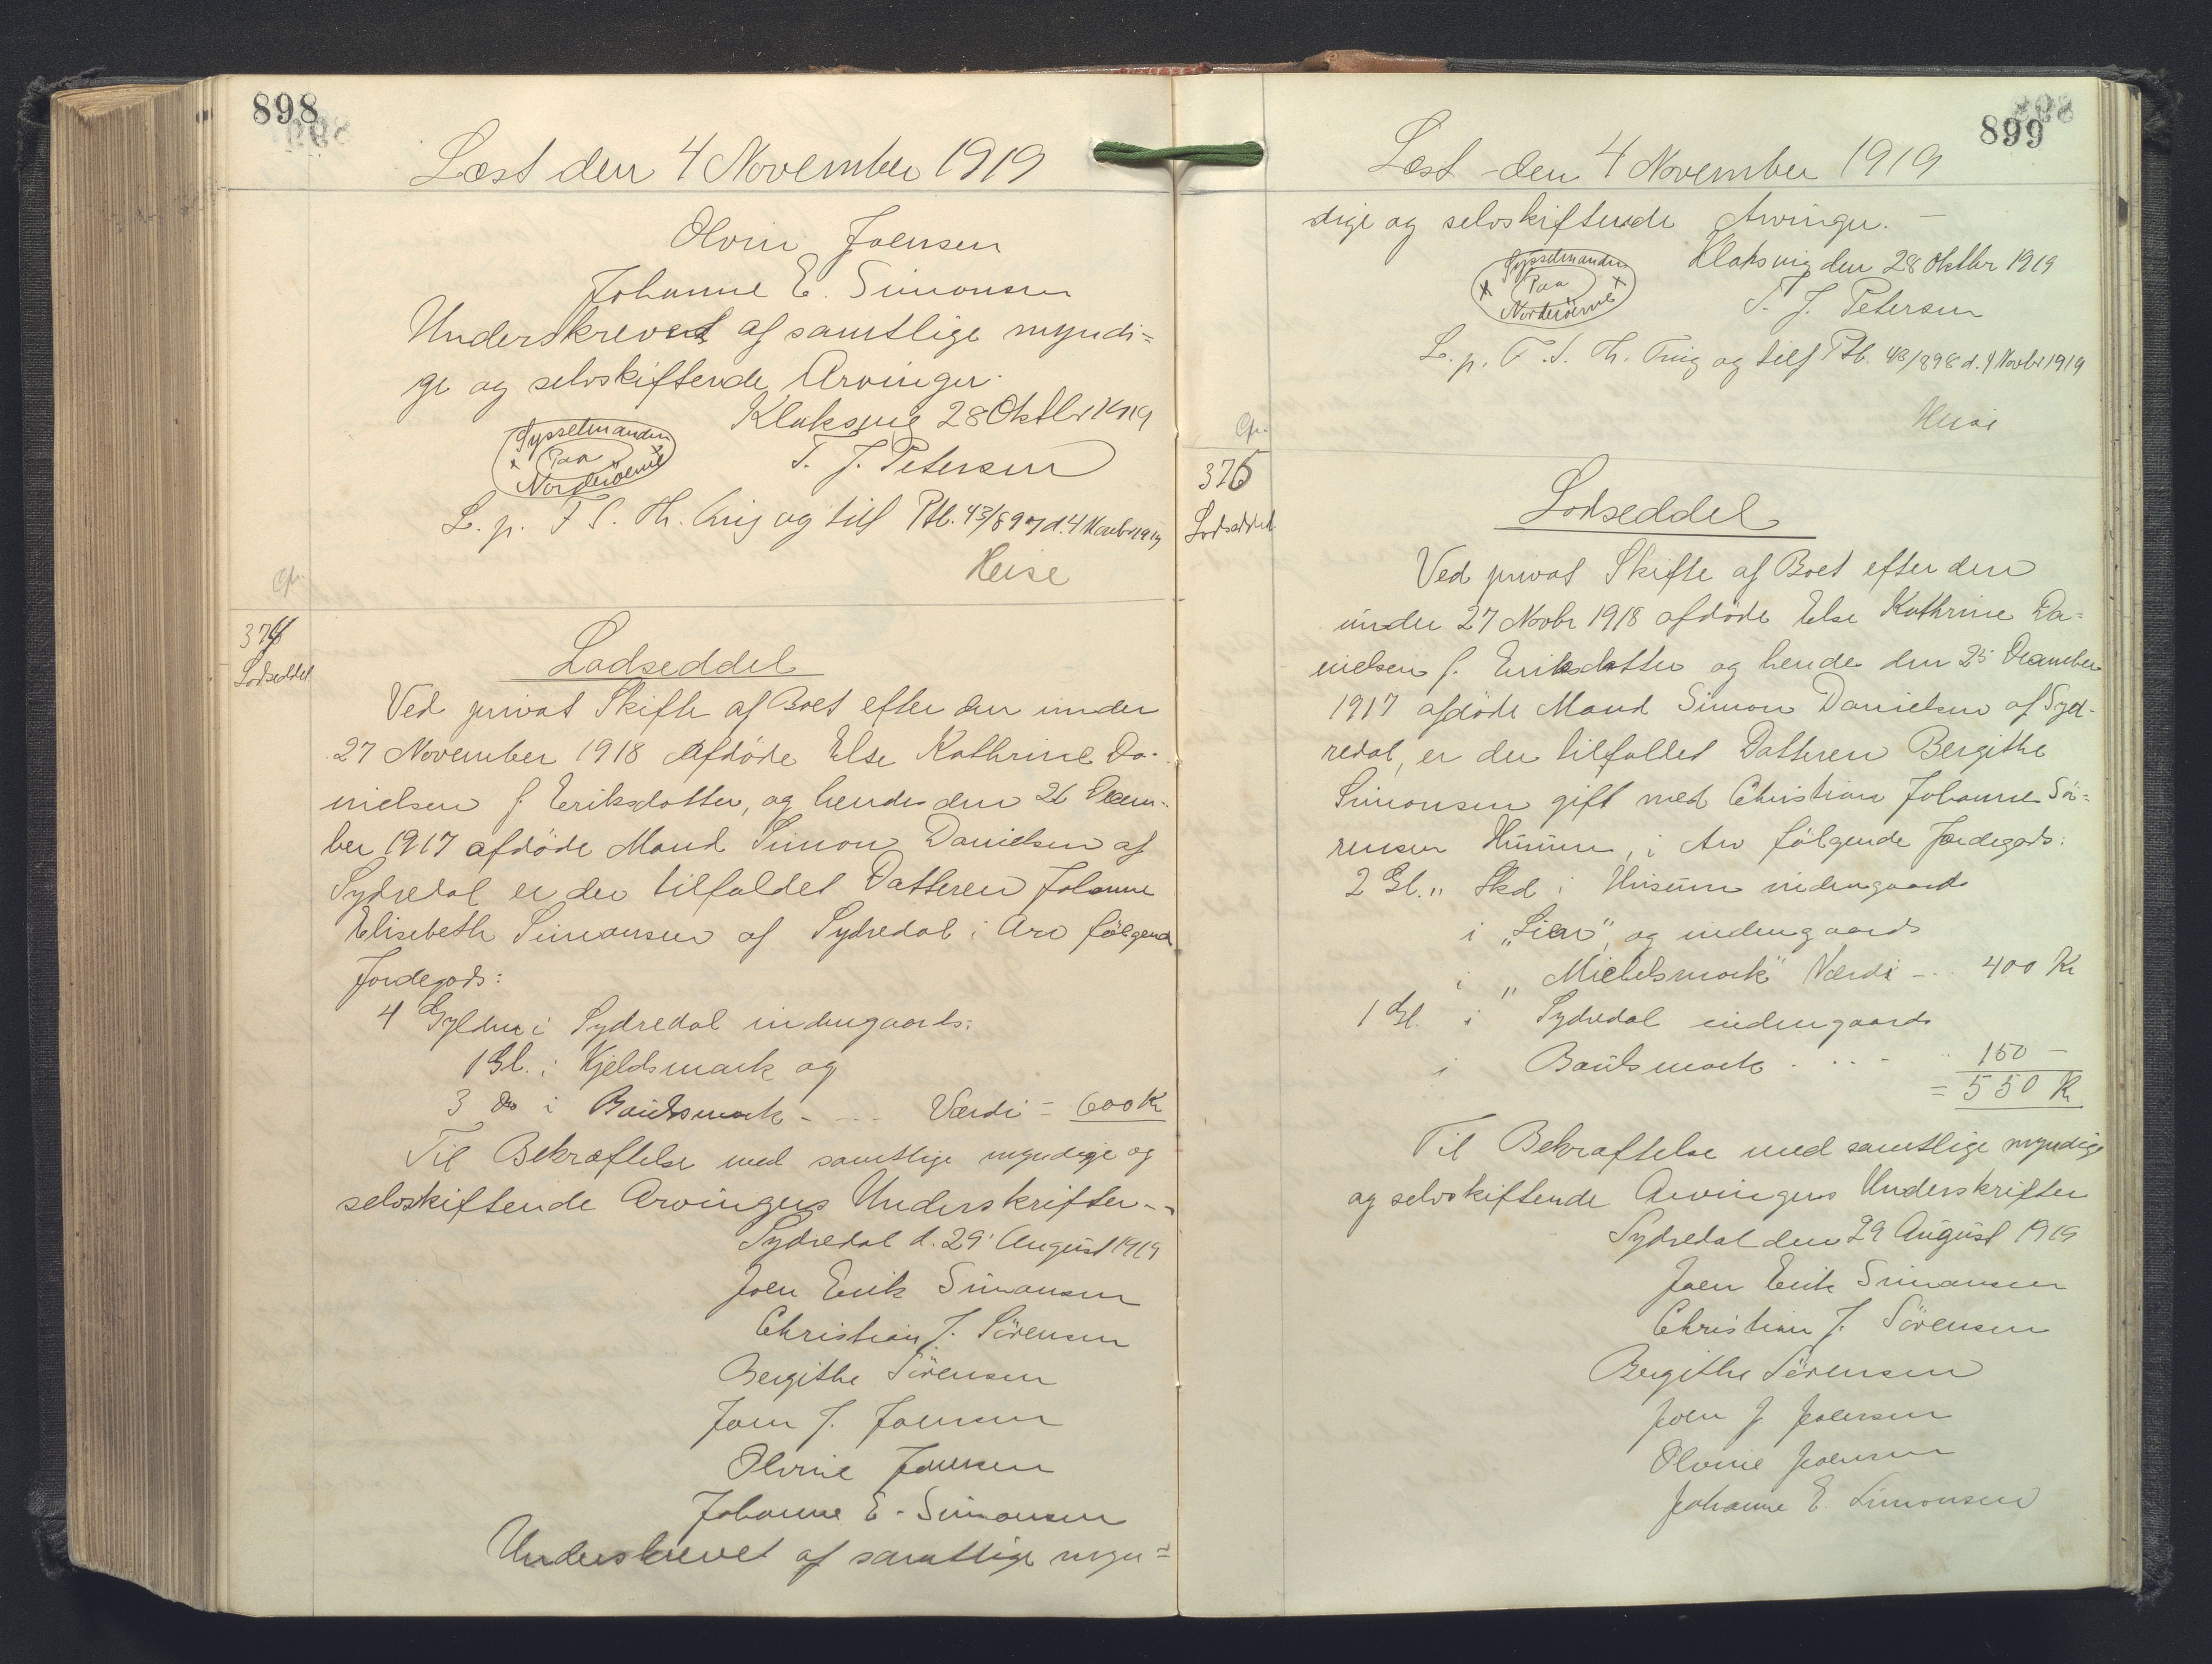 898
Læst den 4 November 1919
Olvin Joensen
Johanne E. Simonsen
Underskrevet af samtlige myndi=
ge og selvskiftende Arvinger.
Klaksvig 28 Oktbr 1919
Sysselmanden
Paa
Norderöerne
T. J. Petersen
L. p. F. S. Th. Ting og tilf Ptb. 43/897 d. 4 Novbr 1919
Heise
374
Lodseddel
Lodseddel
Ved privat Skifte af Boet efter den under
27 November 1918 afdöde Else Kathrine Da-
nielsen f. Eriksdatter, og hendes den 26 Decem-
ber 1917 afdöde Mand Simon Danielsen af
Sydredal er der tilfaldet Datteren Johanne
Elisebeth Simonsen af Sydredal i Arv fölgende
Jordegods:
4 Gylden i Sydredal indengaards:
1 Gl. i Kjeldsmark og
3 do i Bauksmark - - - Værdi = 600 Kr
Til Bekræftelse med samtlige myndige og
selvskiftende Arvingers Underskrifter--
Sydredal d. 29' August 1919
Joen Erik Simonsen
Christian J. Sörensen
Bergithe Sörensen
Joen J. Joensen
Olvine Joensen
Johanne E. Simonsen
Underskrevet af samtlige myn=
899
Læst den 4 November 1919
dige og selvskiftende Arvinger. -
Klaksvig den 28 Oktbr 1919
Sysselmanden
Paa
Norderöerne
T. J. Petersen
L. p. F. S. Th. Ting og tilf Ptb. 43/898 d. 4 Novbr 1919
Heise
375
Lodseddel
Lodseddel
Ved privat Skifte af Boet efter den
under 27 Novbr 1918 afdöde Else Kathrine Da=
nielsen f. Eriksdatter og hendes den 25 December
1917 afdöde Mand Simon Danielsen af Syd-
redal, er der tilfaldet Datteren Bergithe
Simonsen gift med Christian Johannes Sö=
rensen Husum, i Arv fölgende Jordegods:
2 Gl. " Skd i Husum indengaards
i " og indengaards
i "Michelsmark" Værdi - .. 400 Kr
1 Gl. i Sydredal indengaards
i Bauksmark . . . - " 150 -
= 550 Kr
Til Bekræftelse med samtlige myndige
og selvskiftende Arvingers Underskrifter
Sydredal den 29 August 1919
Joen Erik Simonsen
Christian J. Sörensen
Bergithe Sörensen
Joen J Joensen
Olvine Joensen
Johanne E. Simonsen